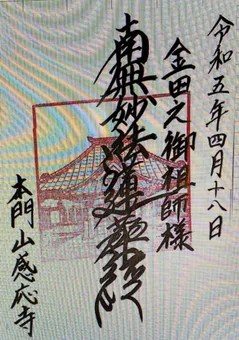 令和五年四月十八日
金田之御祖師様
南無妙法蓮華経
本門山感応寺